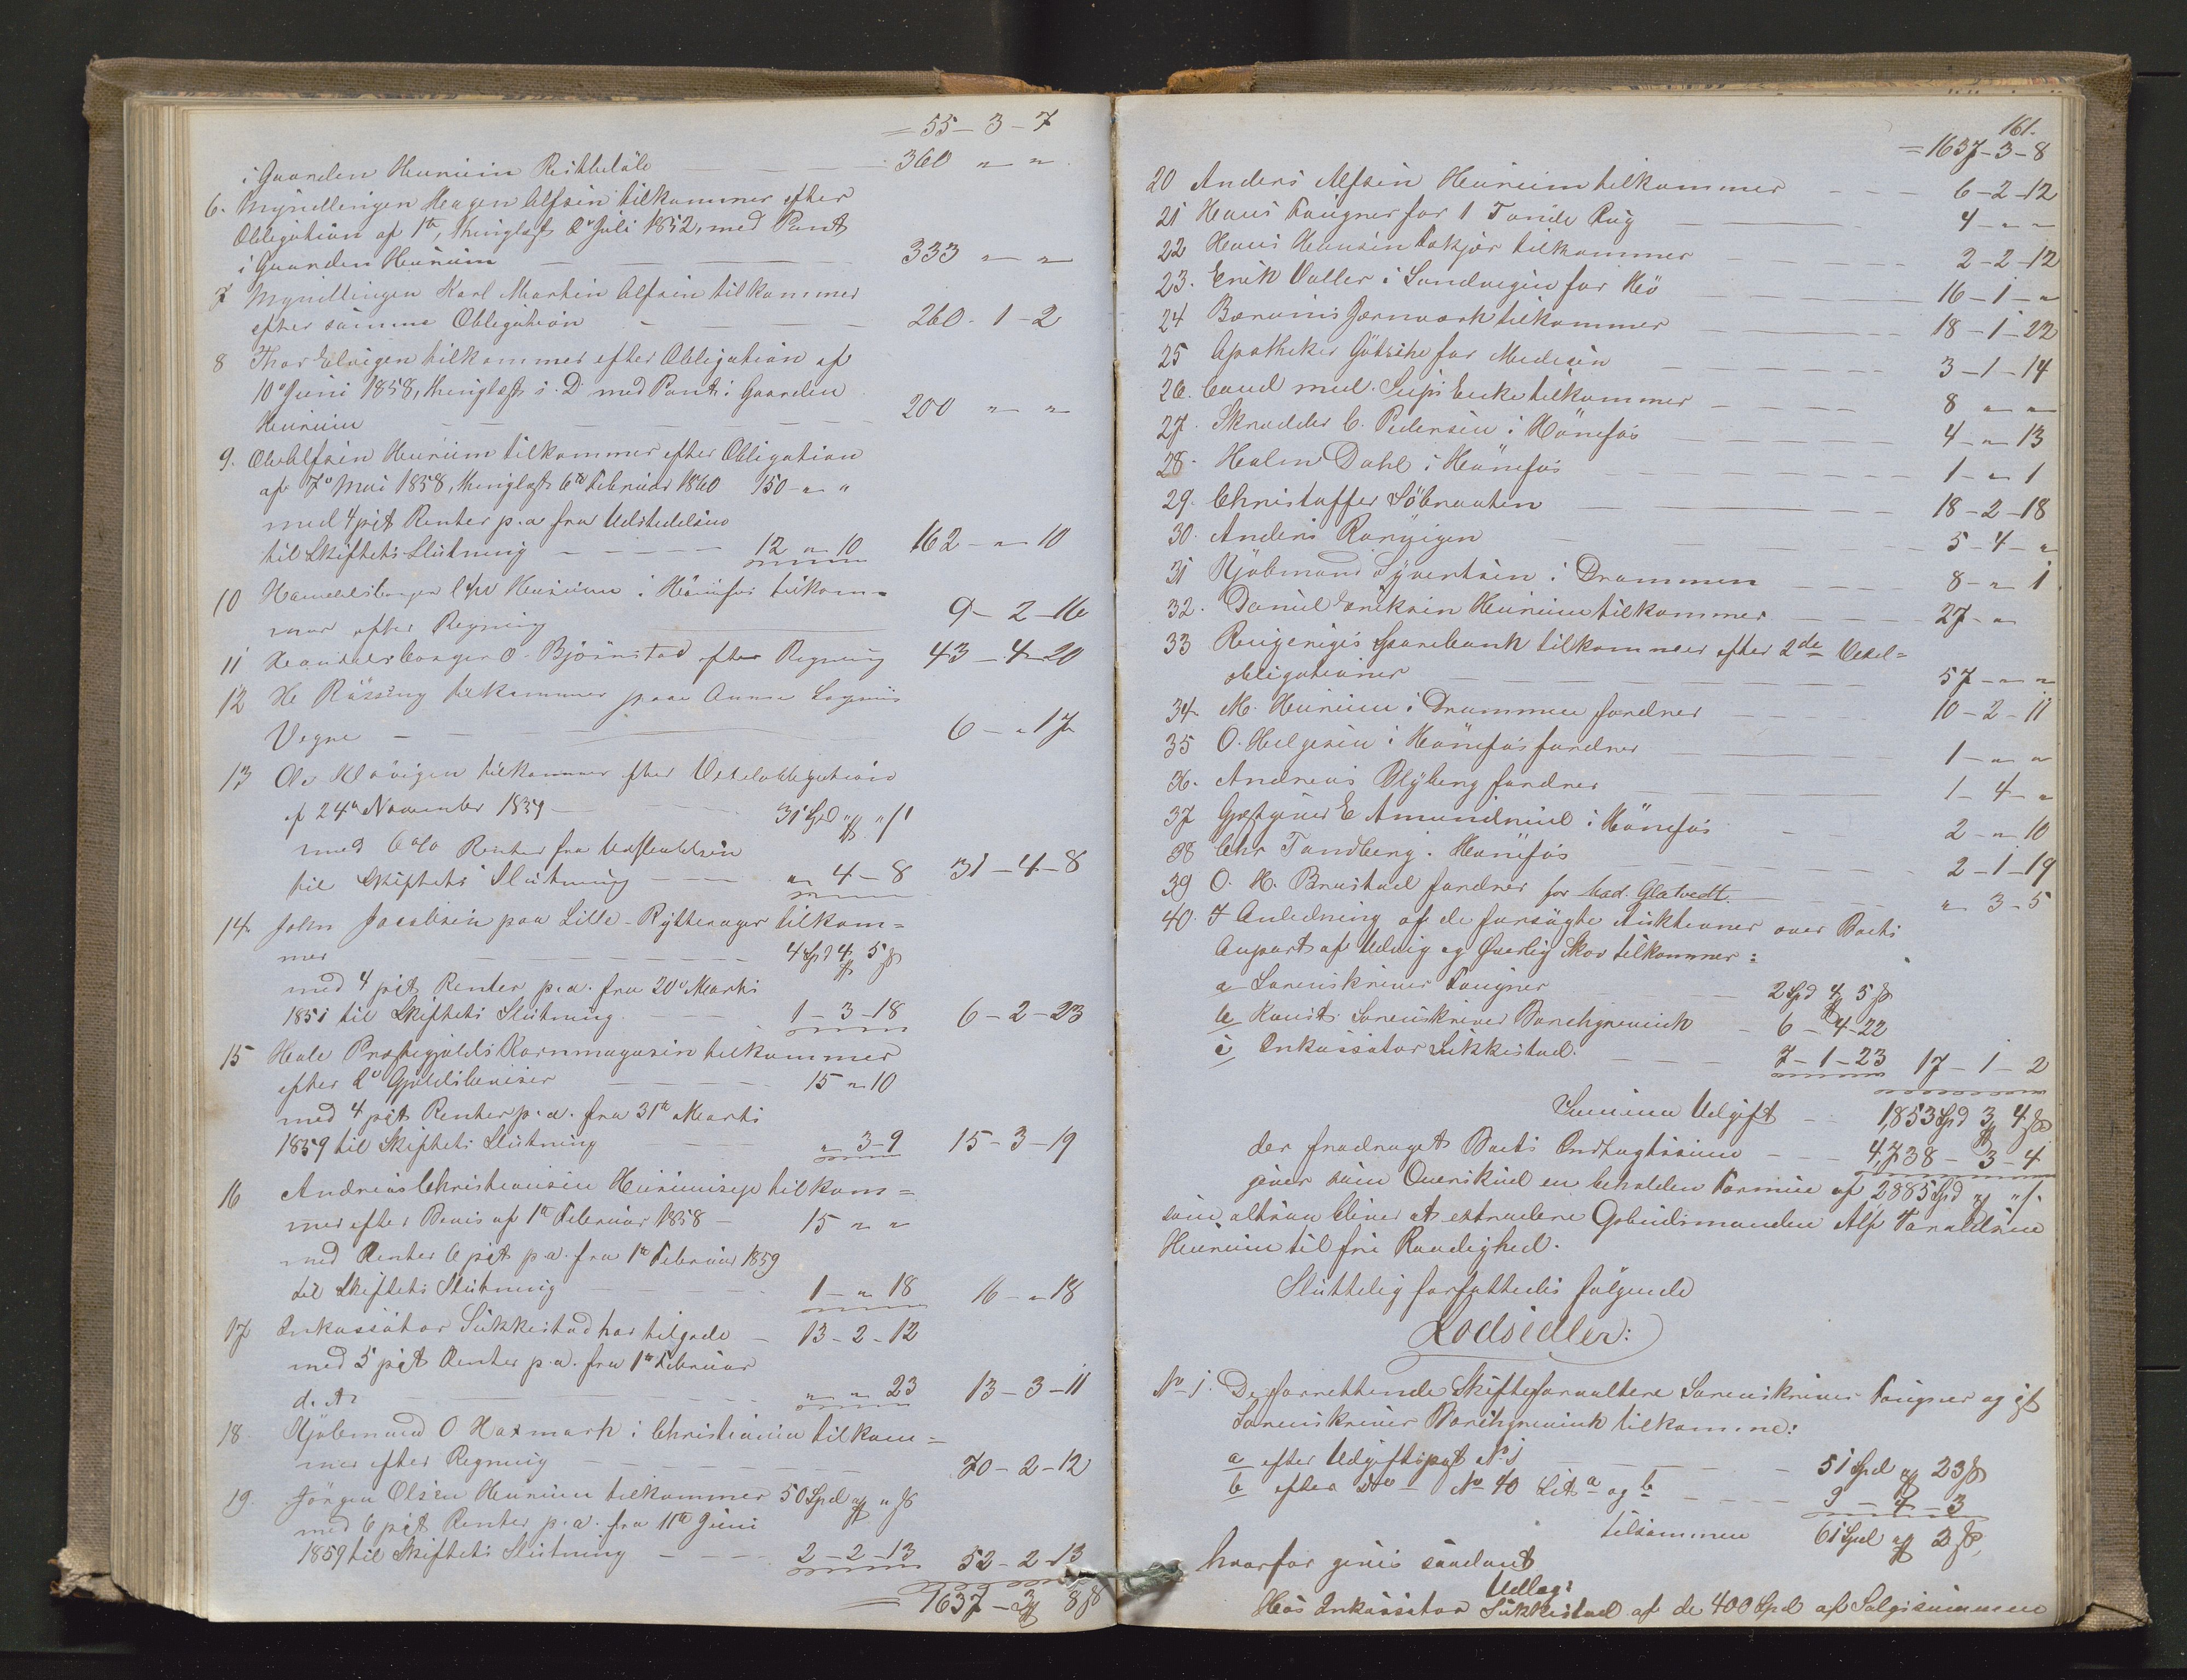 = 55 - 3 - 7
i Gaarden Heuriim 360 " - "
6. Myndlingen Hagen Alfsen tilkommer efter
Obligation af 1te, thinglæst 2 Juli 1852, med Pant
i Gaarden Heuriim — 333 " - "
7 Myndlingen Karl Martin Alfsen tilkommer
efter samme Obligation — 260 - 1 - 2
8 Thor Elvigen tilkommer efter Obligation af
10de Juni 1858, thinglæst s. D. med Pant i Gaarden
Heuriim — 200 " - "
9. Ole Alfsen Heuriim tilkommer efter Obligation
af 7de Mai 1858, thinglæst 6te Februar 1860 150 - " "
med 4 pct Renter p. a. fra Udstedelsen
til Skiftets Slutning — 12 " 10 162 - " - 10
10 Handelsborger Heuriim i Hönefos tilkom=
mer efter Regning 9 - 2 - 16
11 Handelsborger O. Bjørnstad efter Regning 43 - 4 - 20
12 H. Rössing tilkommer paa Anne
Vegne — 6 - " 17
13 Ole tilkommer efter Vexelobligation
af 24de November 1859 — 31 Spd " "
med 6 o/o Renter fra Udstedelsen
til Skiftets Slutning — " 4 - 8 31 - 4 - 8
14. John Jacobsen paa Lille-Rytterager tilkom=
mer 4 Spd 4 5 ß
med 4 pct Renter p. a. fra 20de Marts
1851 til Skiftets Slutning. 1 - 3 - 18 6 - 2 - 23
15 Hole Præstegjælds Kornmagasin tilkommer
efter 2de Gjeldsbeviser — 15 " 10
med 4 pct Renter p. a. fra 31te Marts
1859 til Skiftets Slutning " 3 - 9 15 - 3 - 19
16 Andreas Christiansen Heuriimseje tilkom=
mer efter Bevis af 1te Februar 1858 — 15 " "
med Renter 6 pct p. a. fra 1te Februar 1859
til Skiftets Slutning 1 - " 18 16 - " 18
17 Inkassator Sükkestad har tilgode — 13 - 2 - 12
med 5 pct Renter p. a. fra 1te Februar
d. A. — " " 23 13 - 3 - 11
18. Kjøbmand O Haxmark i Christiania tilkom=
mer efter Regning — 70 - 2 - 12
19. Jörgen Olsen Heuriim tilkommer 50 Spd " " ß
med 6 pct Renter p. a. fra 11te Juni
1859 til Skiftets Slutning — 2 - 2 - 13 52 - 2 - 13
= 1637 - 3 8 ß
161.
= 1637 - 3 - 8
20 Anders Alfsen Heuriim tilkommer — 6 - 2 - 12
21 Hans Fougner for 1 Tønde Rug — 4 - " -
22 Hans Hansen tilkommer — 2 - 2 - 12
23. Erik Valler i Sandvigen for Hö — 16 - 1 - "
24 Bærums Jernværk tilkommer — 18 - 1 - 22
25 Apotheker Götsche for Medicin — 3 - 1 - 14
26. Cand med. tilkommer — 8 " - "
27. Skrædder C. Pedersen i Hönefos — 4 - " 13
28. Halvor Dahl i Hönefos — 1 - " 1
29. Christoffer Söbraaten — 18 - 2 - 18
30. Anders — 5 - 4 - "
31 Kjøbmand Syvertsen i Drammen — 8 - " 1
32. Daniel Eriksen Heuriim tilkommer — 27 - "
33 Ringeriges Sparebank tilkommer efter 2de Vexel=
obligationer — 57 - " - "
34. M. Heuriim i Drammen fordrer — 10 - 2 - 11
35 O. Helgesen i Hönefos fordrer — 1 - " "
36. Andreas Blyberg fordrer — 1 - 4 - "
37 Gjæstgiver E Amundrud i Hönefos — 2 - " 10
38 Chr Tandberg i Hönefos — 2 - 1 - 19
39 O. H. Brustad fordrer for Mad. Glatvedt. " 3 - 5
40. I Anledning af de forsögte Auktioner over Boets
Anpart af Udvig og Øverlig Skov tilkommer:
a Sorenskriver Fougner — 2 Spd 4 5 ß
b Konst. Sorenskriver Borchgrevink — 6 - 4 - 22
c Inkassator Sükkestad. — 7 - 1 - 23 17 - 1 - 2
Summa Udgift — 1,853 Spd 3 4 ß
der fradraget Boets Indtægtssum — 4,738 - 3 - 4
giver som Overskud en beholden Formue af 2,885 Spd " "
som altsaa bliver at extradere Gaardmanden Alf Taraldsen
Heuriim til fri Raadighed.
Sluttelig forfattedes fölgende
Lodsedler:
No 1. De forrettende Skifteforvaltere Sorenskriver Fougner og cst
Sorenskriver Borchgrevink tilkomme:
a efter Udgiftspost No 1 — 51 Spd " 23 ß
b efter Do — No 40 Litr a og b — 9 - 4 - 3
tilsammen 61 Spd " 2 ß,
hvorfor gives saadant
Udlæg:
Hos Inkassator Sükkestad af de 400 Spd af Salgssummen